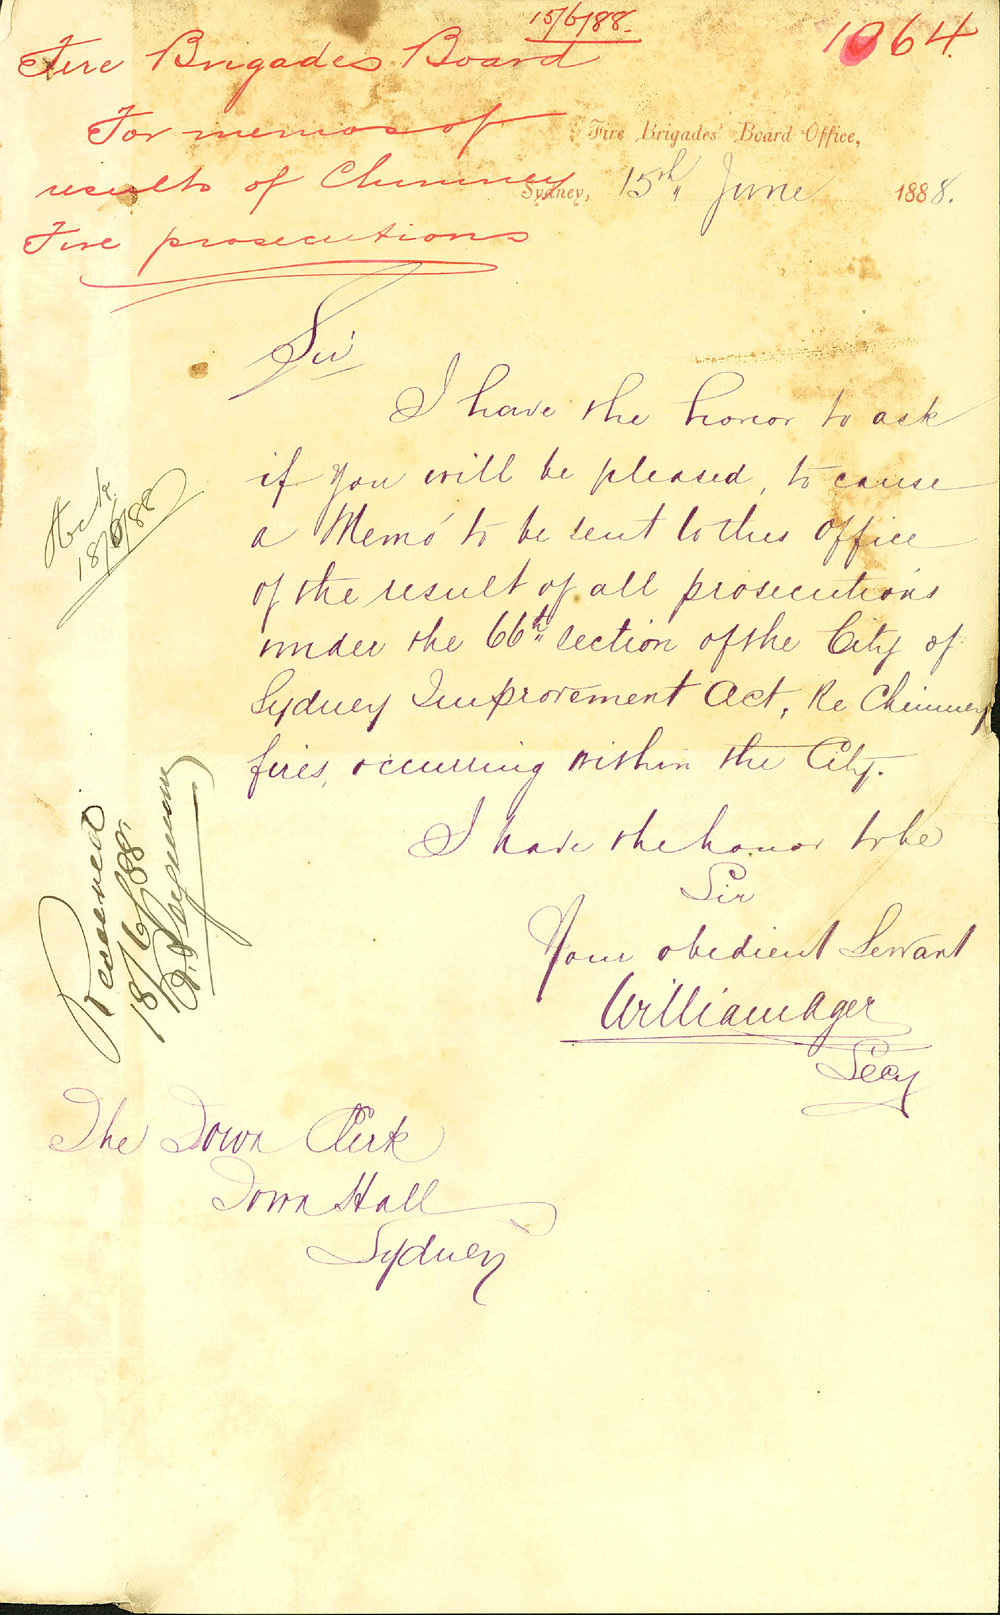 15/6/88.
1064
Fire Brigades Board
For memos of
results of Chimney
Fire prosecutions
Fire Brigades' Board Office,
Sydney, 15th June 1888.
Sir
I have the honor to ask
if you will be pleased, to cause
a Memo to be sent to this Office
of the result of all prosecutions
under the 66th section of the City of
Sydney Improvement Act, Re Chimney
fires, occurring within the City.
I have the honor to be
Sir
Your obedient Servant
William Ager
Secy
The Town Clerk
Town Hall
Sydney
18/6/88
Received
18/6/88